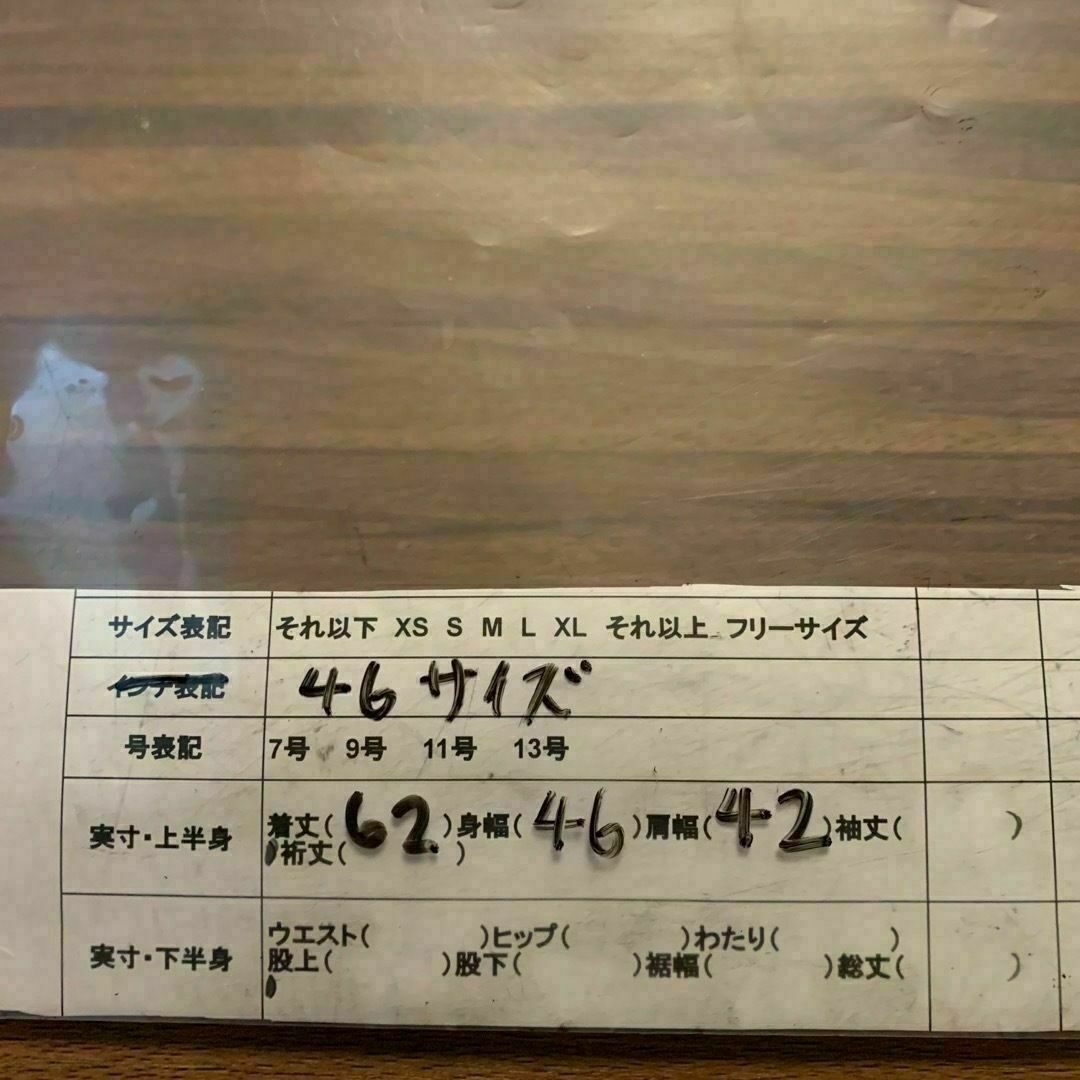 サイズ表記 それ以下 XS S M L XL それ以上 フリーサイズ
インチ表記 46サイズ
号表記 7号 9号 11号 13号
実寸・上半身 着丈(62)身幅(46)肩幅(42)袖丈( )
裄丈( )
実寸・下半身 ウエスト( )ヒップ( )わたり( )
股上( )股下( )裾幅( )総丈( )